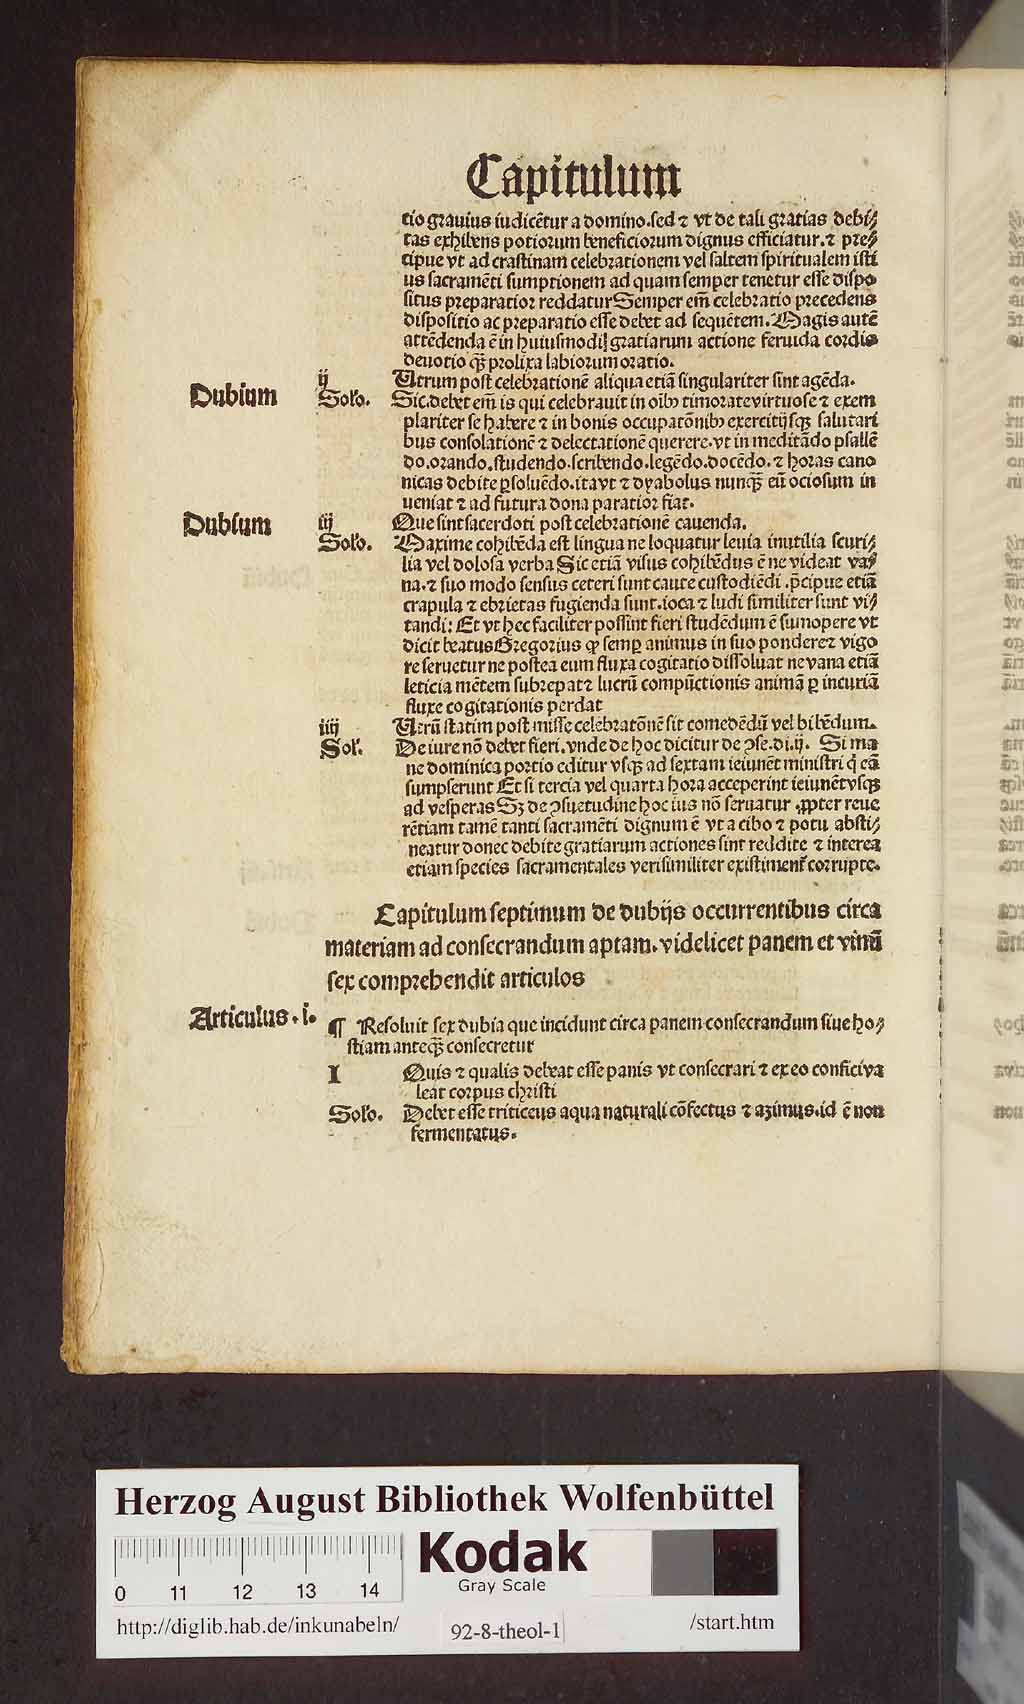 Capitulum
tio grauius iudicẽtur a domino.sed ⁊ vt de tali gratias debi⸗
tas exhibens potiorum beneficiorum dignus efficiatur.⁊ pre⸗
cipue vt ad crastinam celebrationem vel saltem spiritualem isti
us sacramẽti sumptionem ad quam semper tenetur esse dispo
situs preparatior reddatur Semper em̃ celebratio precedens
dispositio ac preparatio esse debet ad sequẽtem. Magis autẽ
attẽdenda ẽ in huiusmodi gratiarum actione feruida cordis
deuotio qꝫ̃ prolixa labiorum oratio.
ij Utrum post celebrationẽ aliqua etiã singulariter sint agẽda.
Dubium Solo. Sic.debet em̃ is qui celebrauit in oĩbꝰ timorate virtuose ⁊ exem
plariter se habere ⁊ in bonis occupatõnibꝰ exercitijsqꝫ salutari
bus consolationẽ ⁊ delectationẽ querere.vt in meditãdo psallẽ
do.orando.studendo.scribendo.legẽdo.docẽdo.⁊ horas cano
nicas debite ꝑsoluẽdo.ita vt ⁊ dyabolus nunqꝫ̃ eũ ociosum in
ueniat ⁊ ad futura dona paratior fiat.
Dubium iij Que sint sacerdoti post celebrationẽ cauenda.
Solo. Maxime cohibẽda est lingua ne loquatur leuia inutilia scuri⸗
lia vel dolosa verba Sic etiã visus cohibẽdus ẽ ne videat va⸗
na.⁊ suo modo sensus ceteri sunt caute custodiẽdi .p̃cipue etiã
crapula ⁊ ebrietas fugienda sunt.ioca ⁊ ludi similiter sunt vi⸗
tandi: Et vt hec faciliter possint fieri studẽdum ẽ sũmopere vt
dicit beatus Gregorius ꝙ semꝑ animus in suo pondere ⁊ vigo
re seruetur ne postea eum fluxa cogitatio dissoluat ne vana etiã
leticia mẽtem subrepat ⁊ lucrũ compũctionis animã ꝑ incuriã
fluxe cogitationis perdat
iiij Utrũ statim post misse celebratõnẽ sit comedẽdũ vel bibẽdum.
Sol. De iure nõ debet fieri.vnde de hoc dicitur de ꝯse.di.ij. Si ma
ne dominica portio editur vsqꝫ ad sextam ieiunẽt ministri q̃ eã
sumpserunt Et si tercia vel quarta hora acceperint ieiunẽt vsqꝫ
ad vesperas Sꝫ de ꝯsuetudine hoc ius nõ seruatur .ꝓpter reue
rẽtiam tamẽ tanti sacramẽti dignum ẽ vt a cibo ⁊ potu absti⸗
neatur donec debite gratiarum actiones sint reddite ⁊ interea
etiam species sacramentales verisimiliter existimenť corrupte.
Capitulum septimum de dubijs occurrentibus circa
materiam ad consecrandum aptam.videlicet panem et vinũ
sex comprehendit articulos
Articulus.i. ¶ Resoluit sex dubia que incidunt circa panem consecrandum siue ho⸗
stiam anteqꝫ̃ consecretur
I Quis ⁊ qualis debeat esse panis vt consecrari ⁊ ex eo confici va
leat corpus christi
Solo. Debet esse triticeus aqua naturali cõfectus ⁊ azimus.id ẽ non
fermentatus.
Herzog August Bibliothek Wolfenbüttel
Kodak
Gray Scale
0 11 12 13 14
http://diglib.hab.de/inkunabeln/ 92-8-theol-1 /start.htm